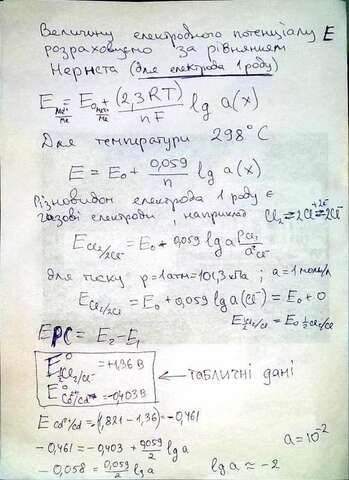 Величину електродного потенціалу E
розраховуємо за рівнянням
Нернста (для електрода 1 роду)
E Me⁺/Me = E₀ Me⁺/Me + (2,3RT)/nF lg a(x)
Для температури 298°C
E = E₀ + 0,059/n lg a(x)
Різновидом електрода 1 роду є
газові електроди, наприклад Cl₂ ⇄ 2Cl ⇄ 2Cl⁻
E Cl₂/2Cl⁻ = E₀ + 0,059 lg a P Cl₂/a² Cl⁻
для тиску p=1атм=101,3кПа ; a=1моль/л
E Cl₂/2Cl = E₀ + 0,059 lg a(Cl⁻) = E₀ + 0
E ½Cl₂/Cl = E₀ ½Cl₂/Cl
EРС = E₂ - E₁
E⁰ ½Cl₂/Cl⁻ = +1,36 В
E⁰ Cd²⁺/Cd = -0,403 В
← табличні дані
E Cd²⁺/Cd = (1,821 - 1,36) = -0,461
-0,461 = -0,403 + 0,059/2 lg a
-0,058 = 0,059/2 lg a
lg a ≈ -2
a = 10⁻²